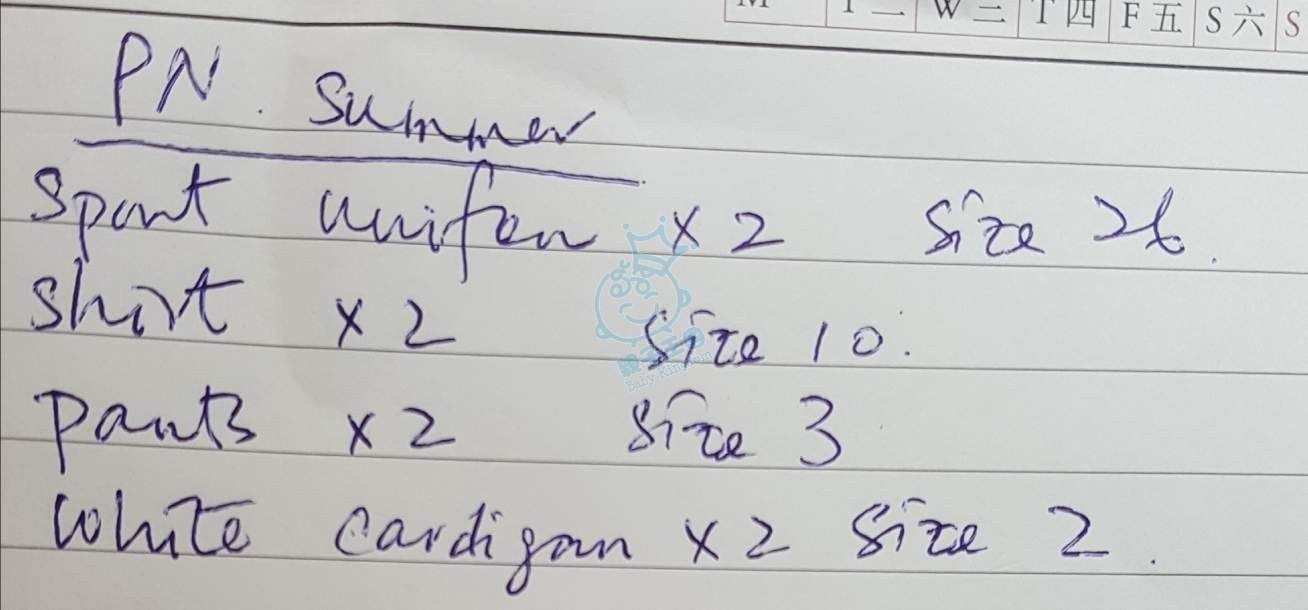 M T 二 W 三 T 四 F 五 S 六 S
PN. Summer
Sport uniform x 2 size 26.
Shirt x 2 size 10.
pants x 2 size 3
white cardigan x 2 size 2.
Baby Kingdom